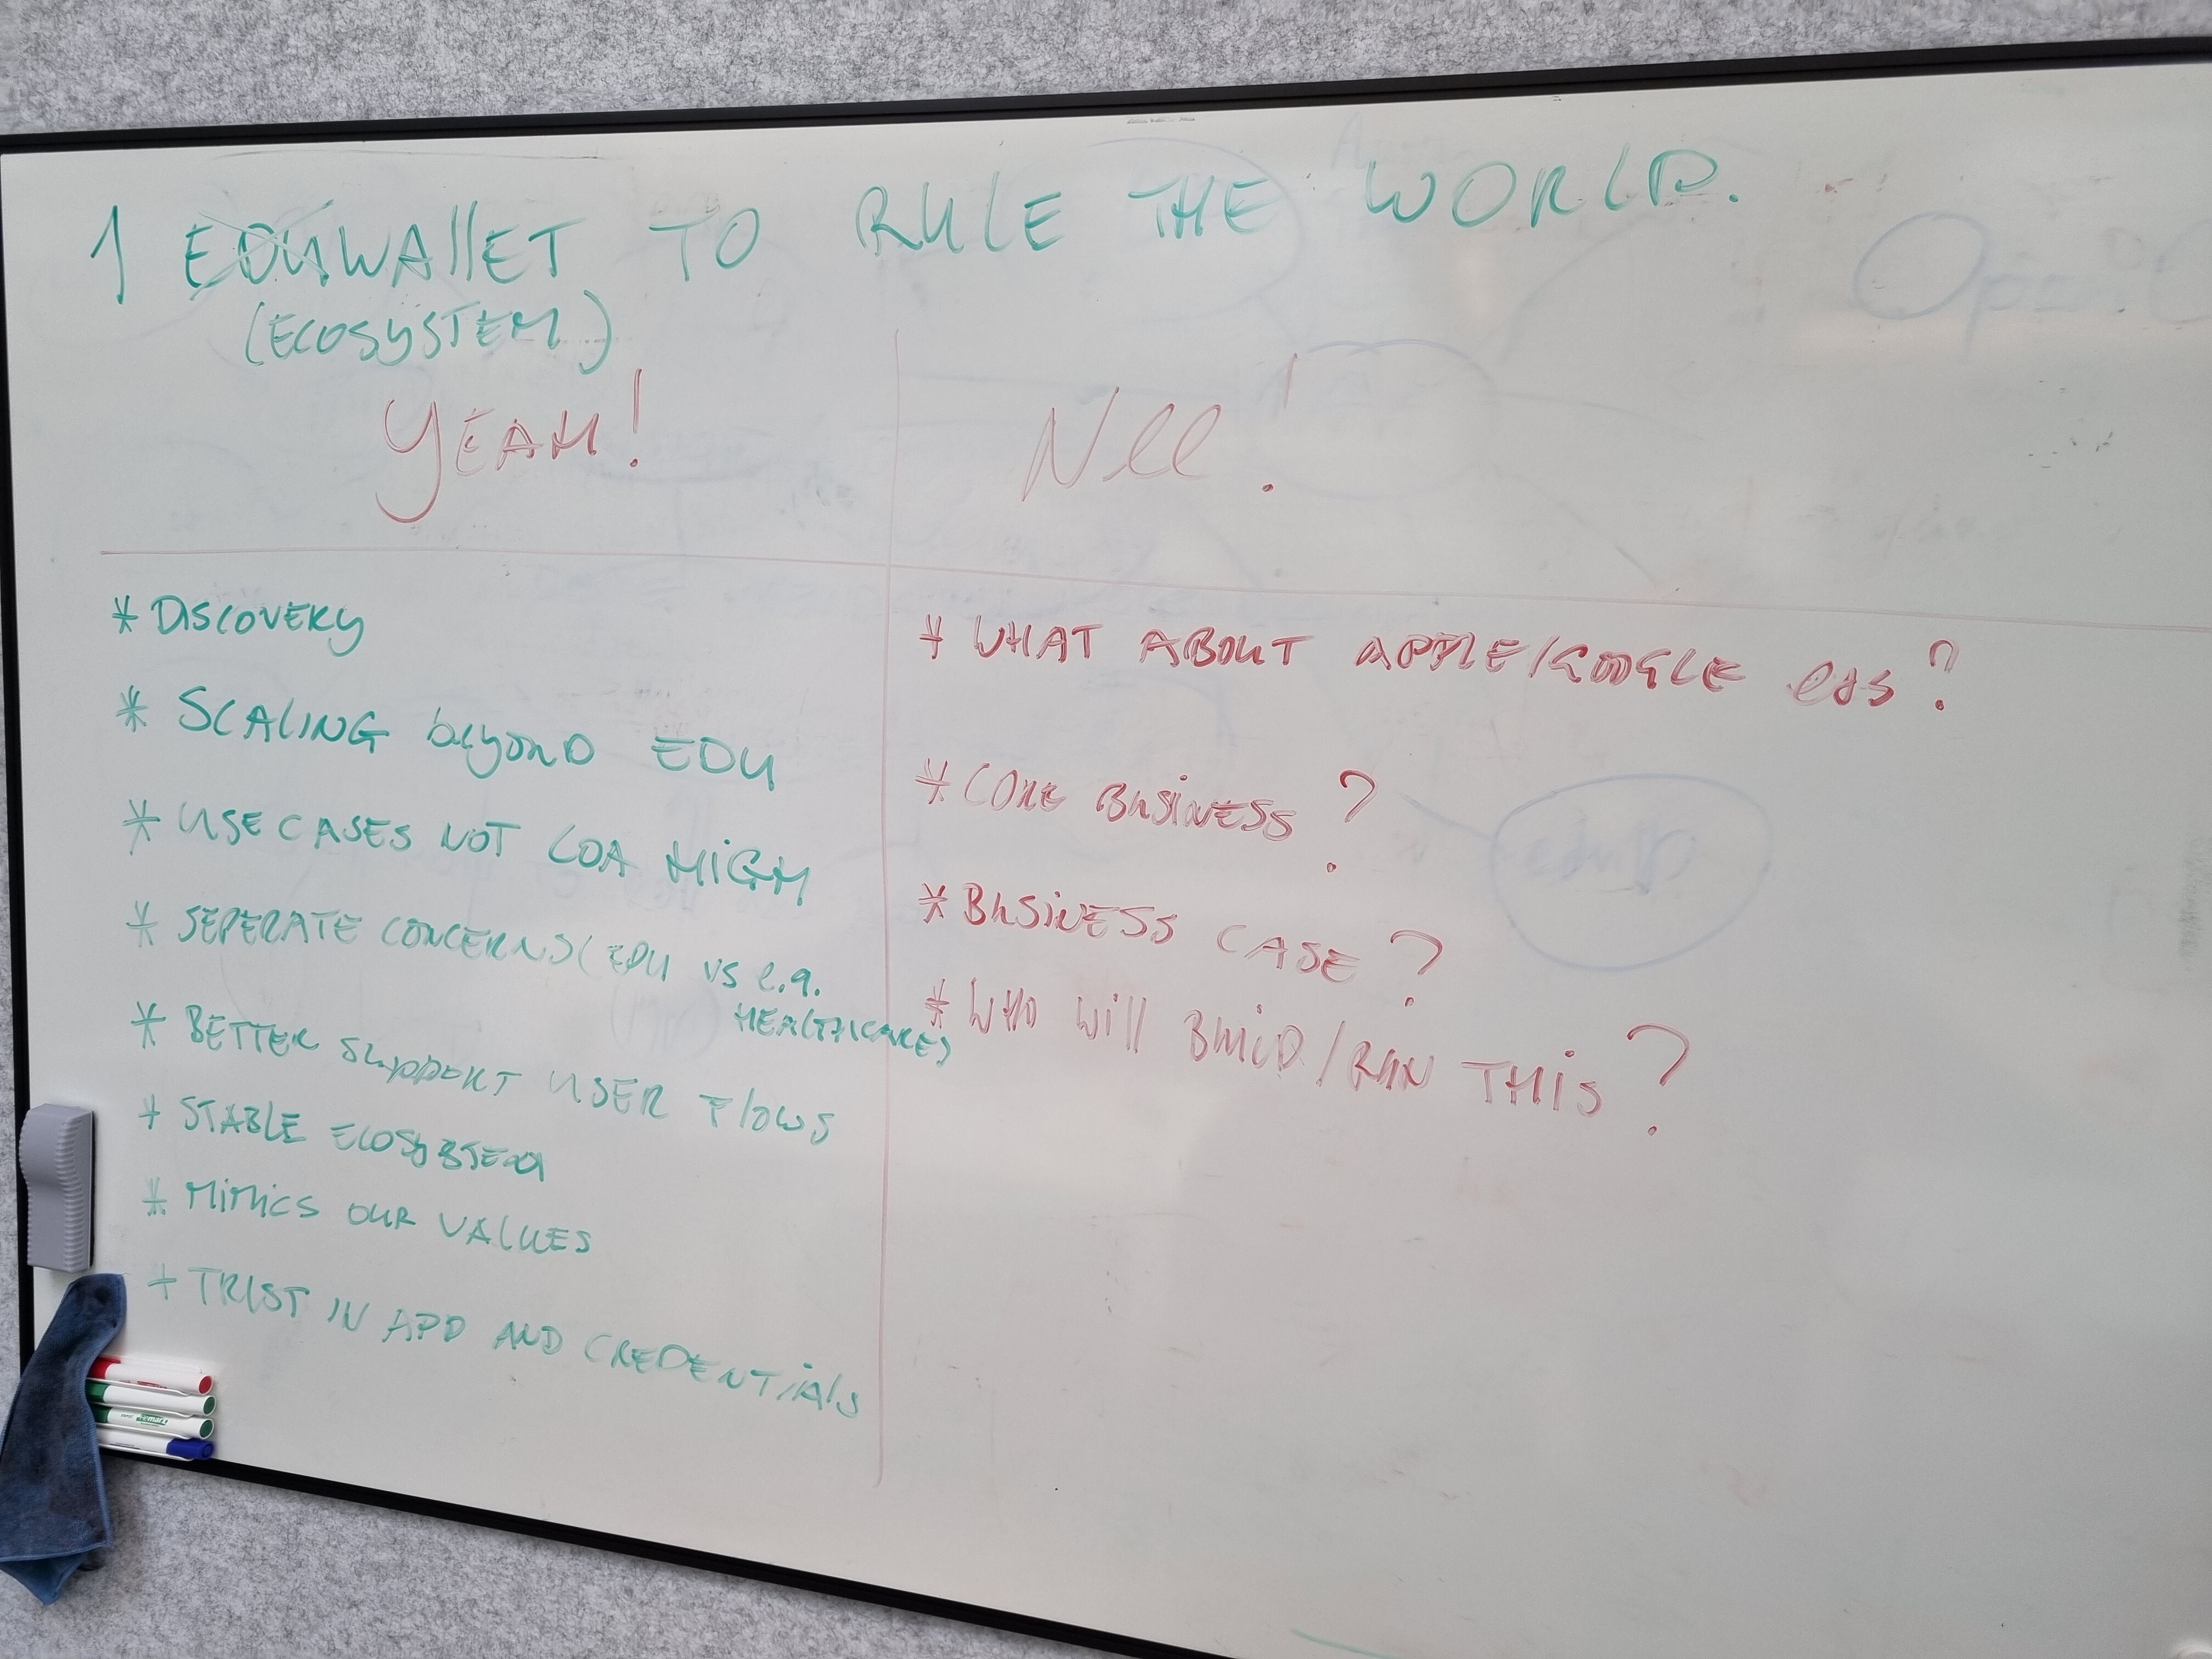 1 EDUWALLET TO RULE THE WORLD.
(ECOSYSTEM)
YEAH!
Nee!
* DISCOVERY
* SCALING beyonD EDU
* USE CASES NOT LOA HiGH
* SEPERATE CONCERNS (EDU vs e.g.
HEALTHCARE)
* BETTER SUppORT USER FlOWS
* STABLE ECOSySTEM
* MiMiCS OUR VALUES
* TRUST IN APP AND CREDENTiAlS
* WHAT ABOUT APPLE/GOOGLE etc?
* CORE BUSiNESS?
* BUSiNESS CASE?
* WHO Will BUilD/RUN THiS?